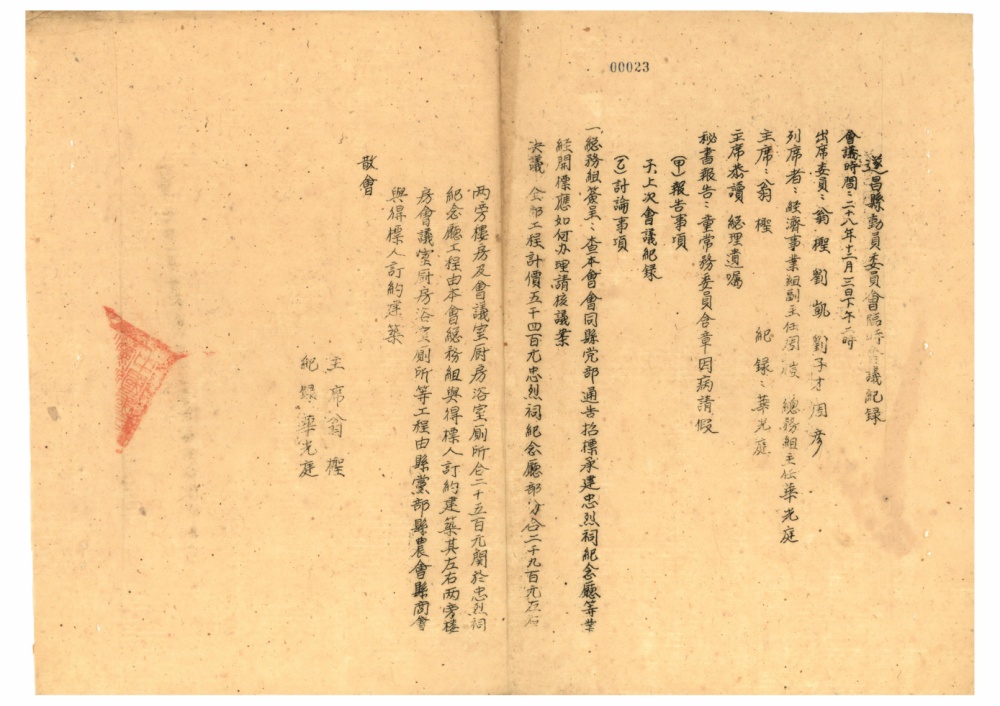 00023
遂昌縣動員委員會臨時會議紀録
會議時間：二十八年十二月三日下午二時
出席委員：翁樫 劉凱 劉子才 周彥
列席者：経濟事業組副主任周 總務組主任華光庭
主席：翁樫 紀録：華光庭
主席恭讀 総理遺囑
秘書報告：童常務委員含章因病請假
(甲)報告事項
子上次會議紀録
(乙)討論事項
一、総務組簽呈：查本會會同縣党部通告招標承建忠烈祠紀念廳等業
経開標應如何办理請核議案
決議 全部工程計價五千四百元忠烈祠紀念廳部分合二千九百元左右
两旁樓房及會議室厨房浴室厠所合二十五百元関於忠烈祠
紀念廳工程由本會総務組與得標人訂約建築其左右两旁樓
房會議室厨房浴室厠所等工程由縣黨部縣農會縣商會
與得標人訂約建築
散會
主席翁樫
紀録華光庭